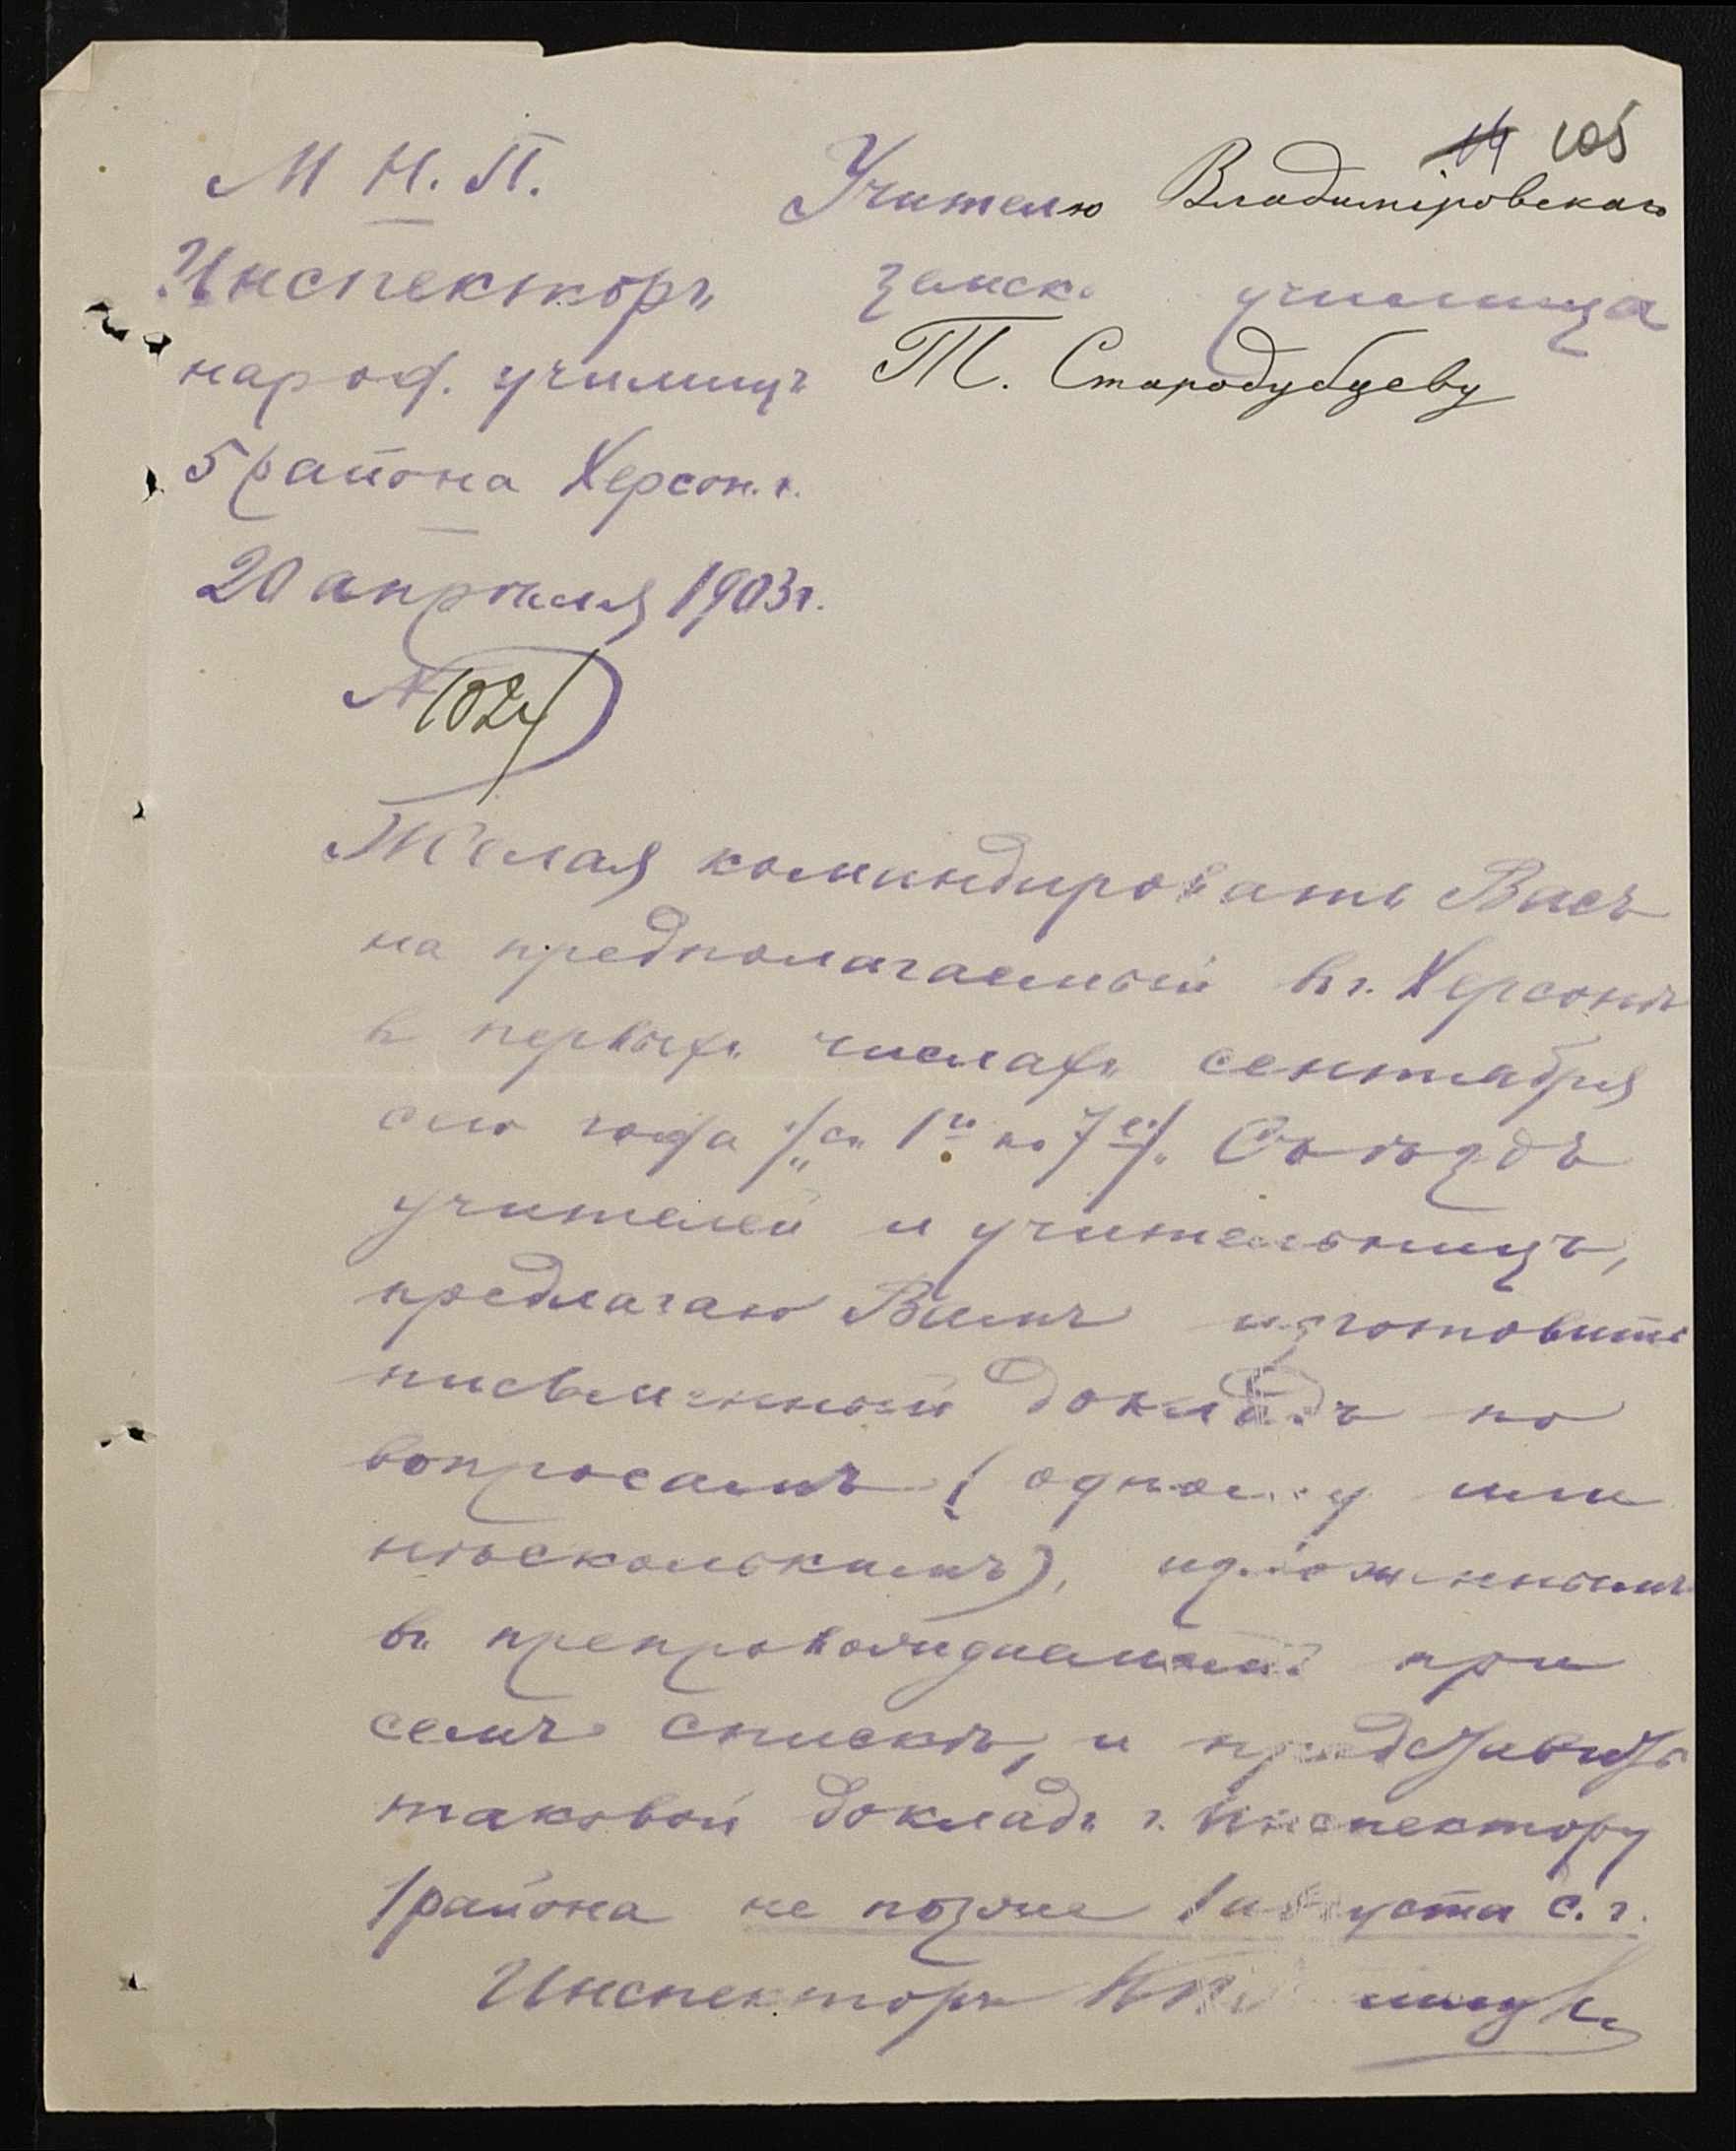 14 105
М Н. П.
Инспекторъ
народ. училищъ
5 района Херсон. г.
20 апрѣля 1903 г.
№ 1024
Учителю Владимiровскаго
земск. училища
Т. Стародубцеву
Желая командировать Васъ
на предполагаемый въ г. Херсонѣ
въ первыхъ числахъ сентября
сего года /съ 1го по 7е/. Съѣздъ
учителей и учительницъ,
предлагаю Вамъ изготовить
письменный докладъ по
вопросамъ (одному или
нѣсколькимъ), изложеннымъ
въ препровождаемомъ при
семъ спискѣ, и представить
таковой докладъ г. Инспектору
1 района не позже 1 августа с. г.
Инспекторъ